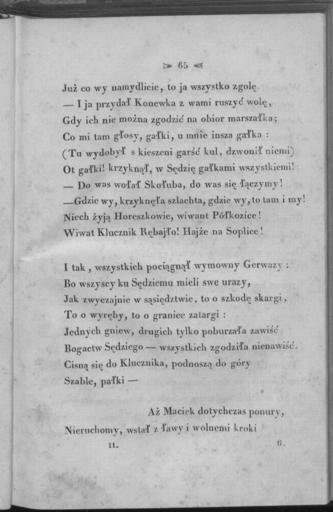 65
Już co wy namydlicie, to ja wszystko zgolę
— I ja przydał Konewka z wami ruszyć wolę,
Gdy ich nie można zgodzić na obior marszałka;
Co mi tam głosy, gałki, u mnie insza gałka :
(Tu wydobył s kieszeni garść kul, dzwonił niemi)
Ot gałki! krzyknął, w Sędzię gałkami wszystkiemi!
— Do was wołał Skołuba, do was się łączymy!
—Gdzie wy, krzyknęła szlachta, gdzie wy, to tam i my!
Niech żyją Horeszkowie, wiwant Półkozice!
Wiwat Klucznik Rębajło! Hajże na Soplice!
I tak, wszystkich pociągnął wymowny Gerwazy :
Bo wszyscy ku Sędziemu mieli swe urazy,
Jak zwyczajnie w sąsiędztwie, to o szkodę skargi,
To o wyręby, to o granice zatargi :
Jednych gniew, drugich tylko poburzała zawiść
Bogactw Sędziego — wszystkich zgodziła nienawiść.
Cisną się do Klucznika, podnoszą do góry
Szable, pałki —
Aż Maciek dotychczas ponury,
Nieruchomy, wstał z ławy i wolnemi kroki
II. 6.